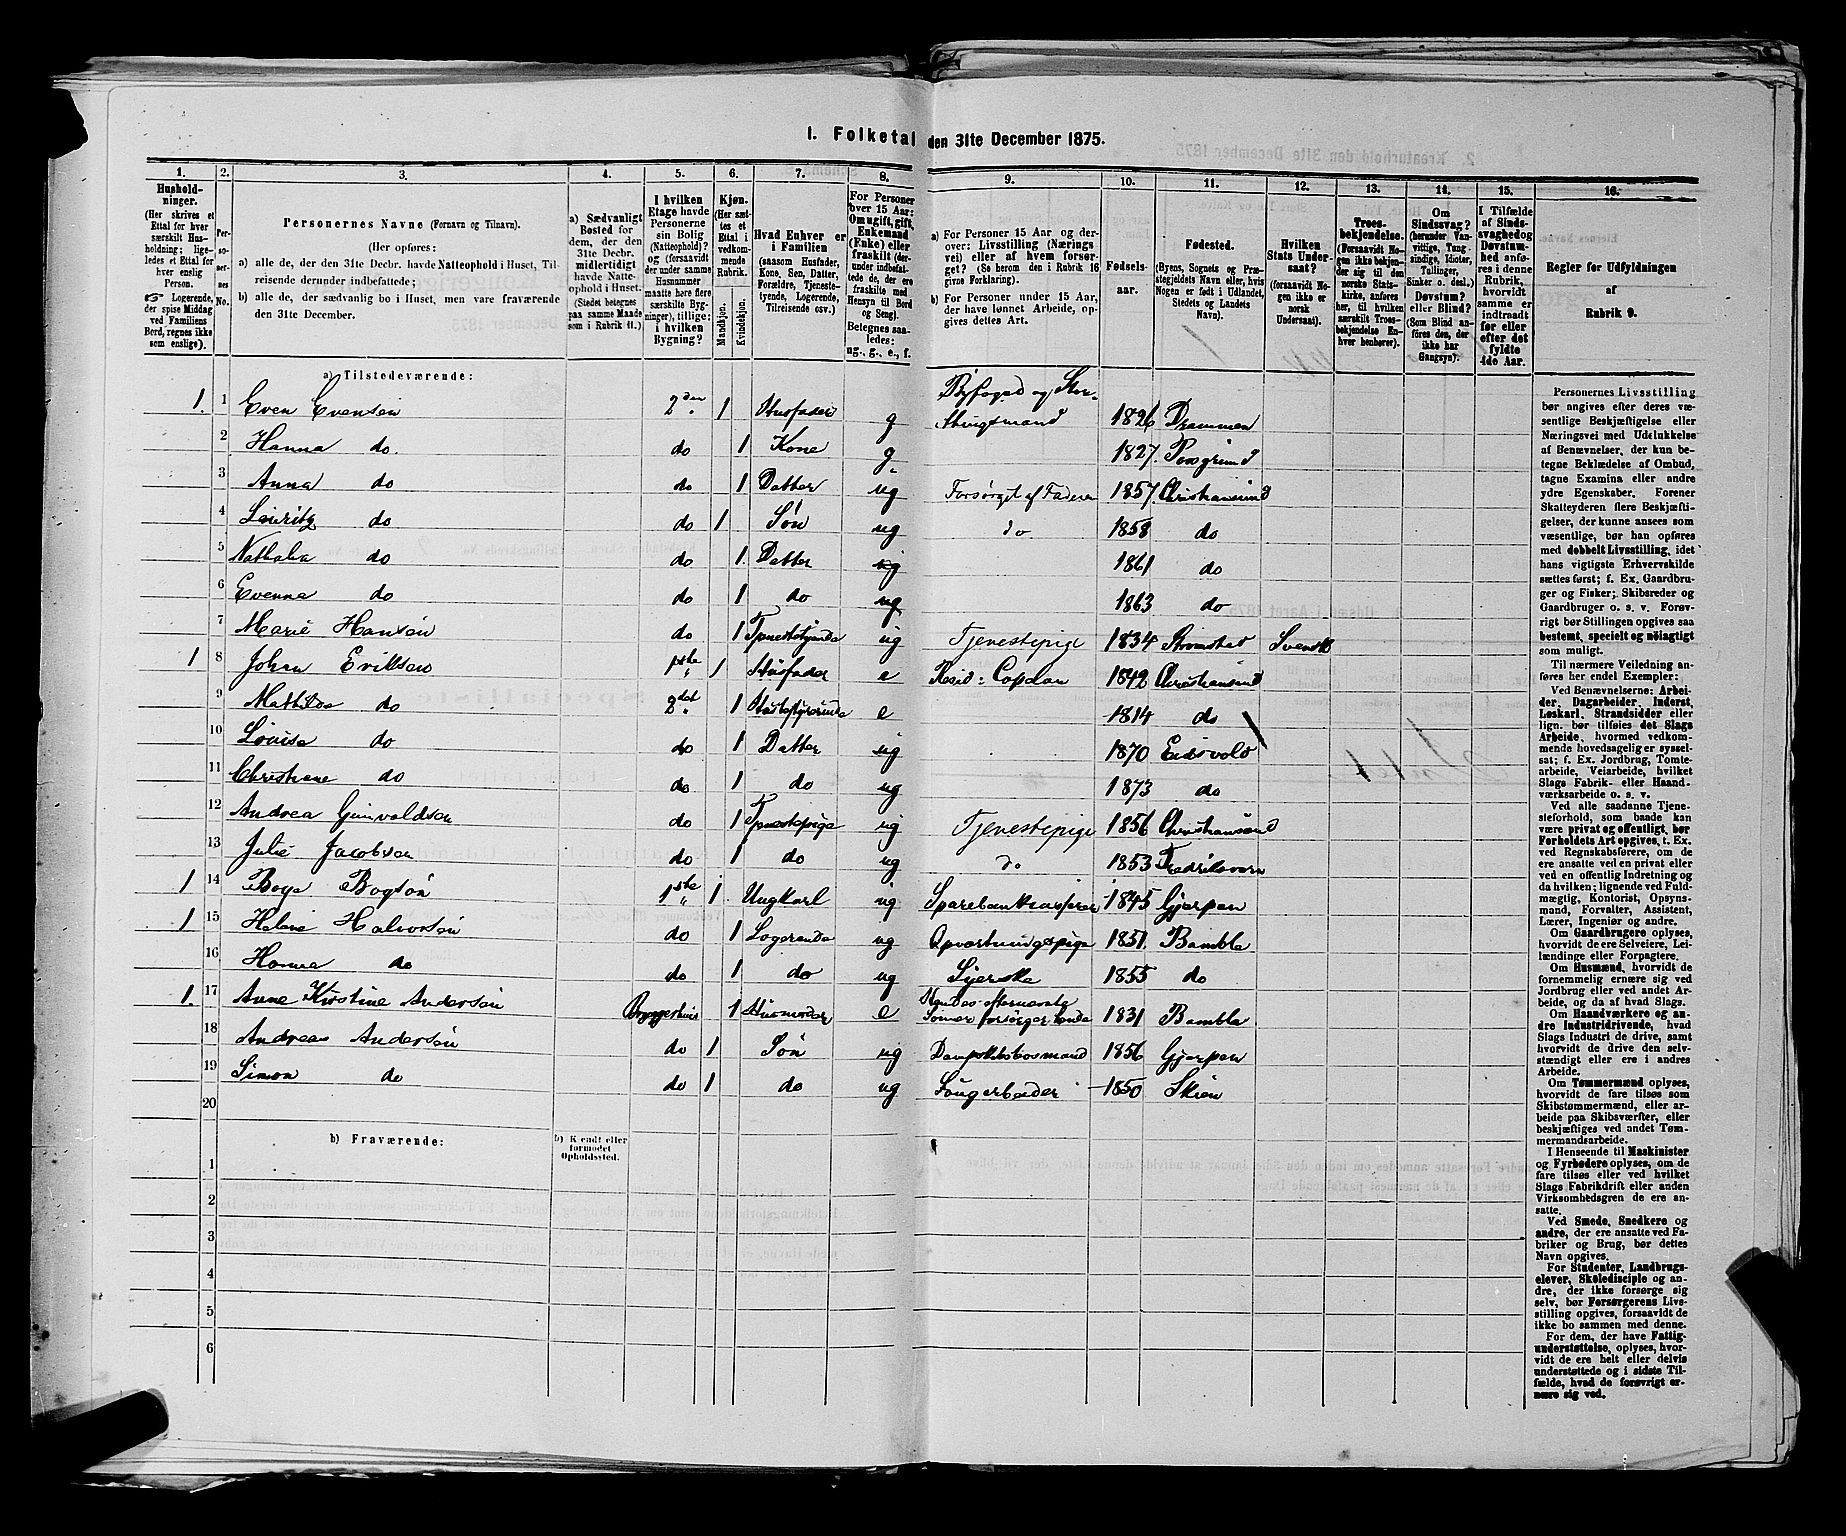 I. Folketal den 31te December 1875.
1. 2. 3. 4. 5. 6. 7. 8. 9. 10. 11. 12. 13. 14. 15. 16.
Hushold-
ninger.
(Her skrives et
Ettal for hver
særskilt Hus-
holdning; lige-
ledes et Ettal for
hver enslig
Person.
☞ Logerende,
der spise Middag
ved Familiens
Bord, regnes ikke
som enslige).
Per-
so-
ner-
nes
No.
Personernes Navne (Fornavn og Tilnavn).
(Her opføres:
a) alle de, der den 31te Decbr. havde Natteophold i Huset, Til-
reisende derunder indbefattede;
b) alle de, der sædvanlig bo i Huset, men vare fraværende
den 31te December.
a) Sædvanligt
Bosted for
dem, der den
31te Decbr.
midlertidigt
havde Natte-
ophold i Huset.
(Stedet betegnes
paa samme Maade
som i Rubrik 11.)
I hvilken
Etage havde
Personerne
sin Bolig
(Natteophold)?
og (forsaavidt
der under samme
Husnummer
maatte høre flere
særskilte Byg-
ninger), tillige:
i hvilken
Bygning?
Kjøn.
(Her sæt-
tes et
Ettal i
vedkom-
mende
Rubrik.
Mandkjøn.
Kvindekjøn.
Hvad Enhver er
i Familien
(saasom Husfader,
Kone, Søn, Datter,
Forældre, Tjeneste-
tyende, Logerende,
Tilreisende osv.)
For Personer
over 15 Aar:
Om ugift, gift,
Enkemand
(Enke) eller
fraskilt (der-
under indbefat-
tede de, der ere
fraskilte med
Hensyn til Bord
og Seng).
Betegnes saa-
ledes:
ug., g., e., f.
a) For Personer 15 Aar og der-
over: Livsstilling (Nærings-
vei) eller af hvem forsør-
get? (Se herom den i Rubrik 16
givne Forklaring).
b) For Personer under 15 Aar,
der have lønnet Arbeide, op-
gives dettes Art.
Fødsels-
aar.
Fødested.
(Byens, Sognets og Præ-
stegjeldets Navn eller, hvis
Nogen er født i Udlandet,
Stedets og Landets
Navn).
Hvilken
Stats Under-
saat?
(forsaavidt No-
gen ikke er
norsk
Undersaat).
Troes-
bekjendelse.
(Forsaavidt No-
gen ikke bekjen-
der sig til den
norske Stats-
kirke, anføres
her, til hvilken
særskilt Troes-
bekjendelse En-
hver henhører).
Om
Sindssvag?
(herunder Van-
vittige, Tung-
sindige, Idioter,
Tullinger,
Sinker o. desl.)
Døvstum?
eller Blind?
(Som Blind an-
føres den, der
ikke har
Gangsyn).
I Tilfælde
af Sinds-
svaghed og
Døvstum-
hed anfø-
res i denne
Rubrik,
hvorvidt
samme er
indtraadt
før eller
efter det
fyldte
4de Aar.
Regler for Udfyldningen
af
Rubrik 9.
a) Tilstedeværende:
1. 1 Even Evensen 2den 1 Husfader g Byfoged og Stor-
thingsmand 1826 Drammen
2 Hanna do. do 1 Kone g. 1827. Porsgrund
3 Anna do do 1 Datter ug Forsørget af Faderen 1857 Christiansund
4 Lauritz do do 1 Søn ug do 1858 do
5 Nathalia do do 1. Datter ug 1861 do
6 Evenna do do 1 do ug 1863 do
7 Marie Hansen do 1 Tjenestetyende ug Tjenestepige 1834 Strømstad Svensk
1 8 Johan Eriksen 1ste 1 Husfader e Resid: Capelan 1842 Christiansund
9 Mathilde do 2det 1 Husbestyrerinde e 1814 do
10 Louise do do 1 Datter ug 1870 Eidsvold
11 Christiane do do 1 do ug 1873 do
12 Andrea Gunvaldsen do 1 Tjenestepige ug Tjenestepige 1856 Christiansand
13 Julie Jacobsen do 1 do ug do 1853 Fredriksværn
1 14 Boye 1ste 1 Ungkarl ug Sparebankkasserer 1845 Gjerpen
1 15 Helene Halvorsen do 1 Logerende ug Opvartningspige 1851. Bamble
16 Hanna do do 1 do ug Syerske 1855 do
1. 17 Anne Kirstine Andersen Bryggerhus 1 Husmoder e Hendes efternævnte
Sønner forsørger hende 1831 Bamble
18 Andreas Andersen do 1 Søn ug Dampskibsbosmand 1856 Gjerpen
19 Simon do do 1 do ug Sougarbeider 1850 Skien
20
b) Fraværende:
b) Kjendt eller
formodet
Opholdssted.
1
2
3
4
5
6
Personernes Livsstilling
bør angives efter deres væ-
sentlige Beskjæftigelse eller
Næringsvei med Udelukkelse
af Benævnelser, der kun be-
tegne Beklædelse af Ombud,
tagne Examina eller andre
ydre Egenskaber. Forener
Skatteyderen flere Beskjæfti-
gelser, der kunne ansees som
væsentlige, bør han opføres
med dobbelt Livsstilling, idet
hans vigtigste Erhvervskilde
sættes først; f. Ex. Gaardbru-
ger og Fisker; Skibsreder og
Gaardbruger o. s. v. Forøv-
rigt bør Stillingen opgives saa
bestemt, specielt og nøiagtigt
som muligt.
Til nærmere Veiledning an-
føres her endel Exempler:
Ved Benævnelserne: Arbei-
der, Dagarbeider, Inderst,
Løskarl, Strandsidder eller
lign. bør tilføies det Slags
Arbeide, hvormed vedkom-
mende hovedsagelig er syssel-
sat; f. Ex. Jordbrug, Tomte-
arbeide, Veiarbeide, hvilket
Slags Fabrik- eller Haand-
værksarbeide o. s. v.
Ved alle saadanne Tjene-
steforhold, som baade kan
være privat og offentligt, bør
Forholdets Art opgives, t. Ex.
ved Regnskabsførere, om de
ere ansatte ved en privat eller
ved en offentlig Indretning og
da hvilken; lignende ved Fuld-
mægtig, Kontorist, Opsyns-
mand, Forvalter, Assistent,
Lærer, Ingeniør og andre.
Om Gaardbrugere oplyses,
hvorvidt de ere Selveiere, Lei-
lændinge eller Forpagtere.
Om Husmænd, hvorvidt de
fornemmelig ernære sig ved
Jordbrug eller ved andet Ar-
beide, og da af hvad Slags.
Om Haandværkere og an-
dre Industridrivende, hvad
Slags Industri de drive, samt
hvorvidt de drive den selv-
stændigt eller ere i andres
Arbeide.
Om Tømmermænd oplyses,
hvorvidt de fare tilsøs som
Skibstømmermænd, eller ar-
beide paa Skibsværfter, eller
beskjæftiges ved andet Tøm-
mermandsarbeide.
I Henseende til Maskinister
og Fyrbødere oplyses, om de
fare tilsøs eller ved hvilket
Slags Fabrikdrift eller anden
Virksomhedsgren de ere an-
satte.
Ved Smede, Snedkere og
andre, der ere ansatte ved Fa-
briker og Brug, bør dettes
Navn opgives.
For Studenter, Landbrugs-
elever, Skoledisciple og an-
dre, der ikke forsørge sig
selv, bør Forsørgerens Livs-
stilling opgives, forsaavidt de
ikke bo sammen med denne.
For dem, der have Fattig-
understøttelse, oplyses, hvor-
vidt de ere helt eller delvis
understøttede og i sidste Til-
fælde, hvad de forøvrigt er-
nære sig ved.